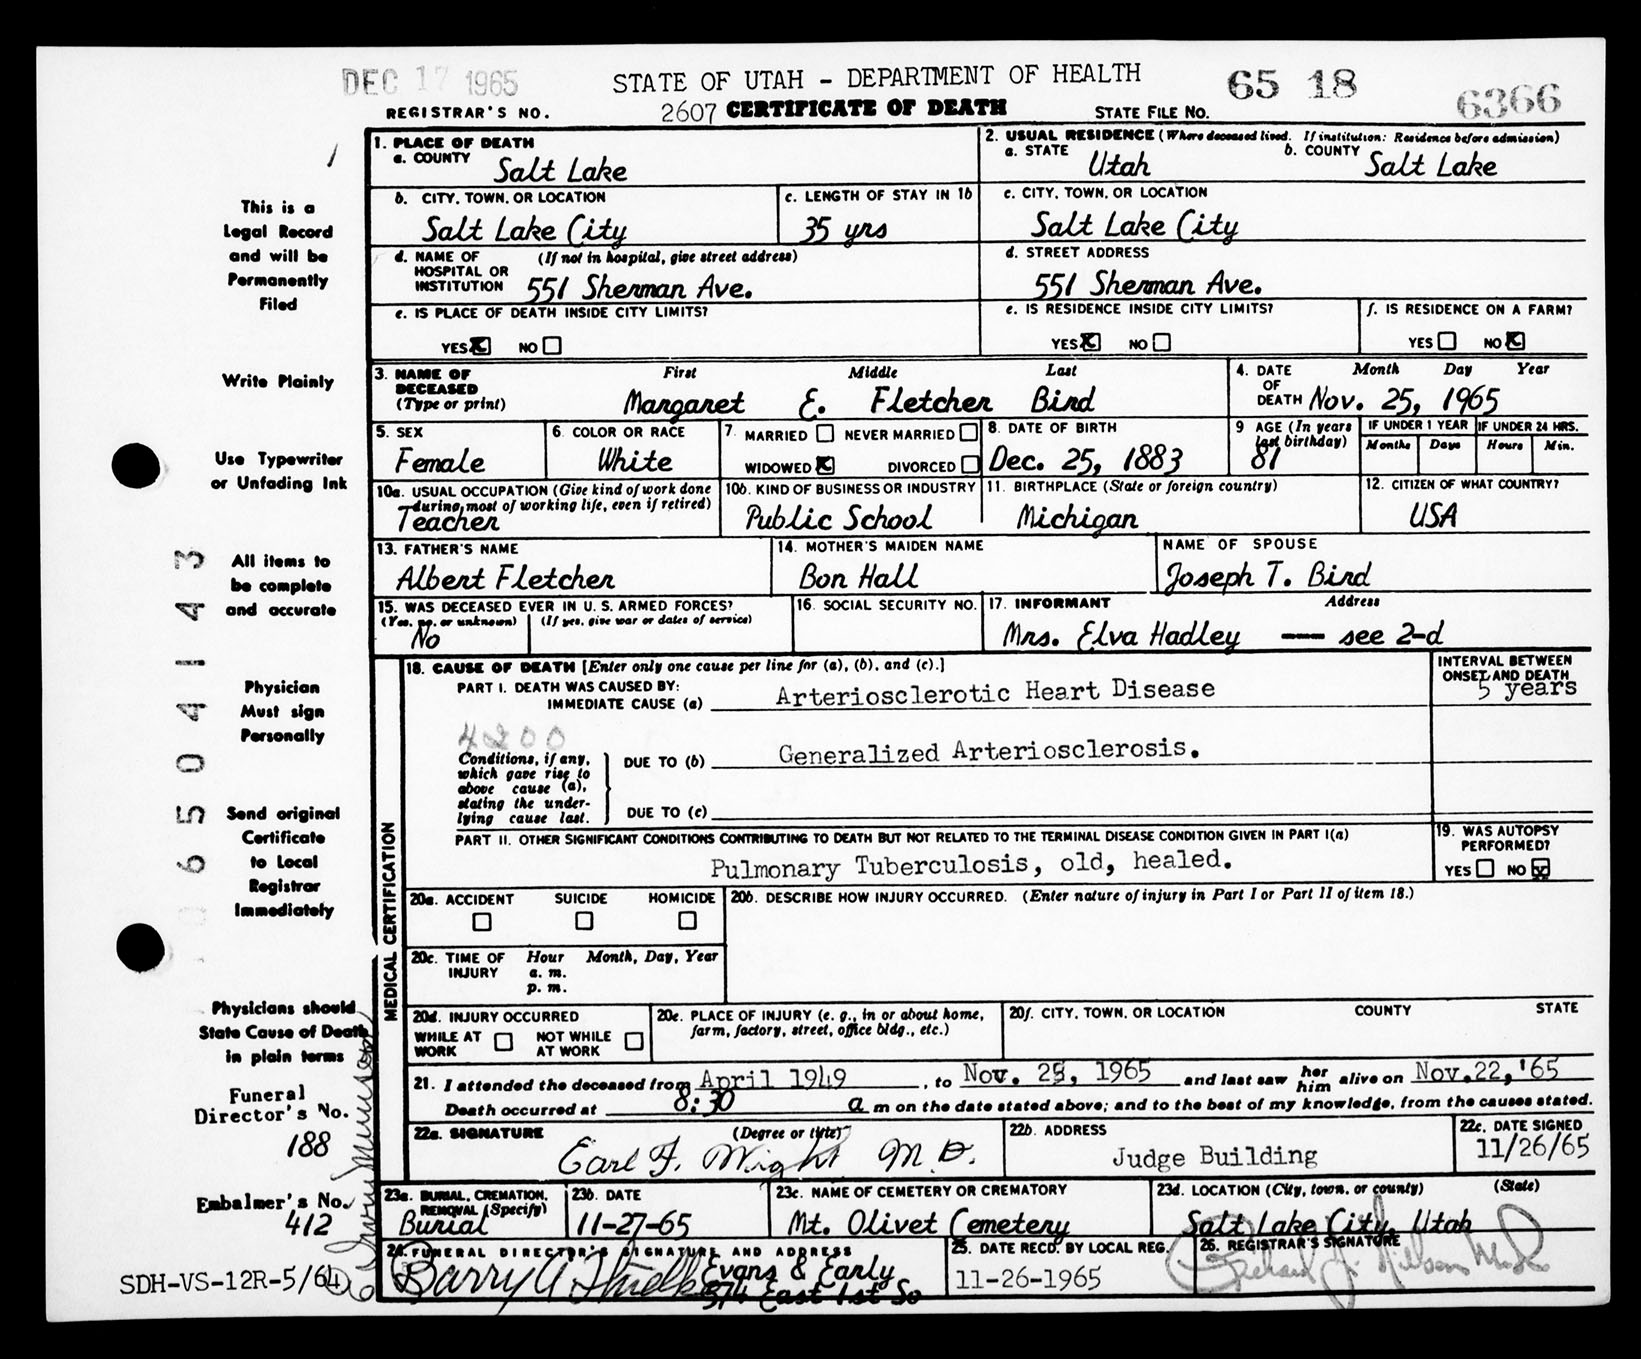 DEC 17 1965
STATE OF UTAH - DEPARTMENT OF HEALTH
65 18
6366
REGISTRAR'S NO. 2607 CERTIFICATE OF DEATH STATE FILE NO.
This is a
Legal Record
and will be
Permanently
Filed
Write Plainly
Use Typewriter
or Unfading Ink
All items to
be complete
and accurate
Physician
Must sign
Personally
Send original
Certificate
to Local
Registrar
Immediately
Physicians should
State Cause of Death
in plain terms
Funeral
Director's No.
188
Embalmer's No.
412
SDH-VS-12R-5/64
065041443
1. PLACE OF DEATH
a. COUNTY
Salt Lake
2. USUAL RESIDENCE (Where deceased lived. If institution: Residence before admission)
a. STATE Utah b. COUNTY Salt Lake
b. CITY, TOWN, OR LOCATION
Salt Lake City
c. LENGTH OF STAY IN 1b
35 yrs
c. CITY, TOWN, OR LOCATION
Salt Lake City
d. NAME OF HOSPITAL OR INSTITUTION (If not in hospital, give street address)
551 Sherman Ave.
d. STREET ADDRESS
551 Sherman Ave.
e. IS PLACE OF DEATH INSIDE CITY LIMITS?
YES NO
e. IS RESIDENCE INSIDE CITY LIMITS?
YES NO
f. IS RESIDENCE ON A FARM?
YES NO
3. NAME OF DECEASED (Type or print)
First Middle Last
Margaret E. Fletcher Bird
4. DATE OF DEATH
Month Day Year
Nov. 25, 1965
5. SEX
Female
6. COLOR OR RACE
White
7. MARRIED NEVER MARRIED
WIDOWED DIVORCED
8. DATE OF BIRTH
Dec. 25, 1883
9 AGE (In years last birthday)
81
IF UNDER 1 YEAR
Months Days
IF UNDER 24 HRS.
Hours Min.
10a. USUAL OCCUPATION (Give kind of work done during most of working life, even if retired)
Teacher
10b. KIND OF BUSINESS OR INDUSTRY
Public School
11. BIRTHPLACE (State or foreign country)
Michigan
12. CITIZEN OF WHAT COUNTRY?
USA
13. FATHER'S NAME
Albert Fletcher
14. MOTHER'S MAIDEN NAME
Bon Hall
NAME OF SPOUSE
Joseph T. Bird
15. WAS DECEASED EVER IN U. S. ARMED FORCES?
(Yes, no, or unknown) (If yes, give war or dates of service)
No
16. SOCIAL SECURITY NO.
17. INFORMANT Address
Mrs. Elva Hadley — see 2-d
MEDICAL CERTIFICATION
18. CAUSE OF DEATH [Enter only one cause per line for (a), (b), and (c).]
INTERVAL BETWEEN
ONSET AND DEATH
PART I. DEATH WAS CAUSED BY:
IMMEDIATE CAUSE (a) Arteriosclerotic Heart Disease
5 years
4200
Conditions, if any,
which gave rise to
above cause (a),
stating the under-
lying cause last.
DUE TO (b) Generalized Arteriosclerosis.
DUE TO (c)
PART II. OTHER SIGNIFICANT CONDITIONS CONTRIBUTING TO DEATH BUT NOT RELATED TO THE TERMINAL DISEASE CONDITION GIVEN IN PART I(a)
Pulmonary Tuberculosis, old, healed.
19. WAS AUTOPSY
PERFORMED?
YES NO
20a. ACCIDENT SUICIDE HOMICIDE
20b. DESCRIBE HOW INJURY OCCURRED. (Enter nature of injury in Part I or Part II of item 18.)
20c. TIME OF INJURY
Hour Month, Day, Year
a. m.
p. m.
20d. INJURY OCCURRED
WHILE AT WORK NOT WHILE AT WORK
20e. PLACE OF INJURY (e. g., in or about home,
farm, factory, street, office bldg., etc.)
20f. CITY, TOWN, OR LOCATION COUNTY STATE
21. I attended the deceased from April 1949, to Nov. 25, 1965 and last saw her him alive on Nov.22,'65
Death occurred at 8:30 a m on the date stated above; and to the best of my knowledge, from the causes stated.
22a. SIGNATURE (Degree or title)
Earl F. Wight M.D.
22b. ADDRESS
Judge Building
22c. DATE SIGNED
11/26/65
23a. BURIAL, CREMATION,
REMOVAL (Specify)
Burial
23b. DATE
11-27-65
23c. NAME OF CEMETERY OR CREMATORY
Mt. Olivet Cemetery
23d. LOCATION (City, town, or county) (State)
Salt Lake City, Utah
24. FUNERAL DIRECTOR'S SIGNATURE AND ADDRESS
Barry A.
Evans & Early
574 East 1st So
25. DATE RECD. BY LOCAL REG.
11-26-1965
26. REGISTRAR'S SIGNATURE